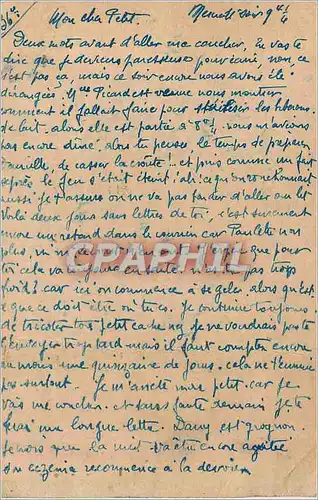 36e
Mon cher Petit. Mercredi soir 9h 1/4
Deux mots avant d'aller me coucher, tu vas te
dire que je deviens paresseuse pour écrire, non, ce
n'est pas ça, mais ce soir encore nous avons été
dérangées. Mme Picard est venue nous montrer
comment il fallait faire pour stériliser les biberons
de lait, alors elle est partie à nous n'avions
pas encore dîné, alors tu penses, le temps de préparer
de casser la croûte! et puis comme un fait
après le feu s'était éteint! ah! ce qu'on
aussi! je t'assure on ne va pas tarder d'aller au lit
Voilà deux jours sans lettres de toi, c'est surement
encore un retard dans le courrier car Paulette non
plus, ni
que pour
toi cela va n'as pas trop
froid? car ici on commence à se geler, alors qu'est
ce que ce doit être où tu es. Je continue toujours
de tricoter ton petit cache nez, je ne voudrais pas te
l'envoyer trop tard mais il faut compter encore
au moins une quinzaine de jours, cela ne t'ennuie
pas surtout. Je m'arrête mon petit car je
vais me coucher. et sans faute demain je te
ferai une longue lettre. Dany est grognon.
je crois que la nuit va être encore agitée
son eczéma recommence à la
CPAPHIL